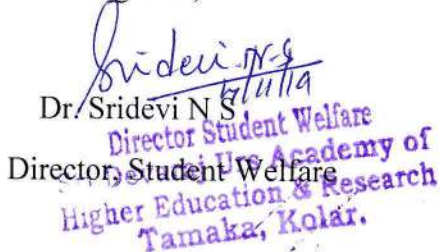 Sridevi.N.S
6/11/19
Dr. Sridevi N S
Director Student Welfare
Director, Student Welfare
Devaraj Urs Academy of
Higher Education & Research
Tamaka, Kolar.